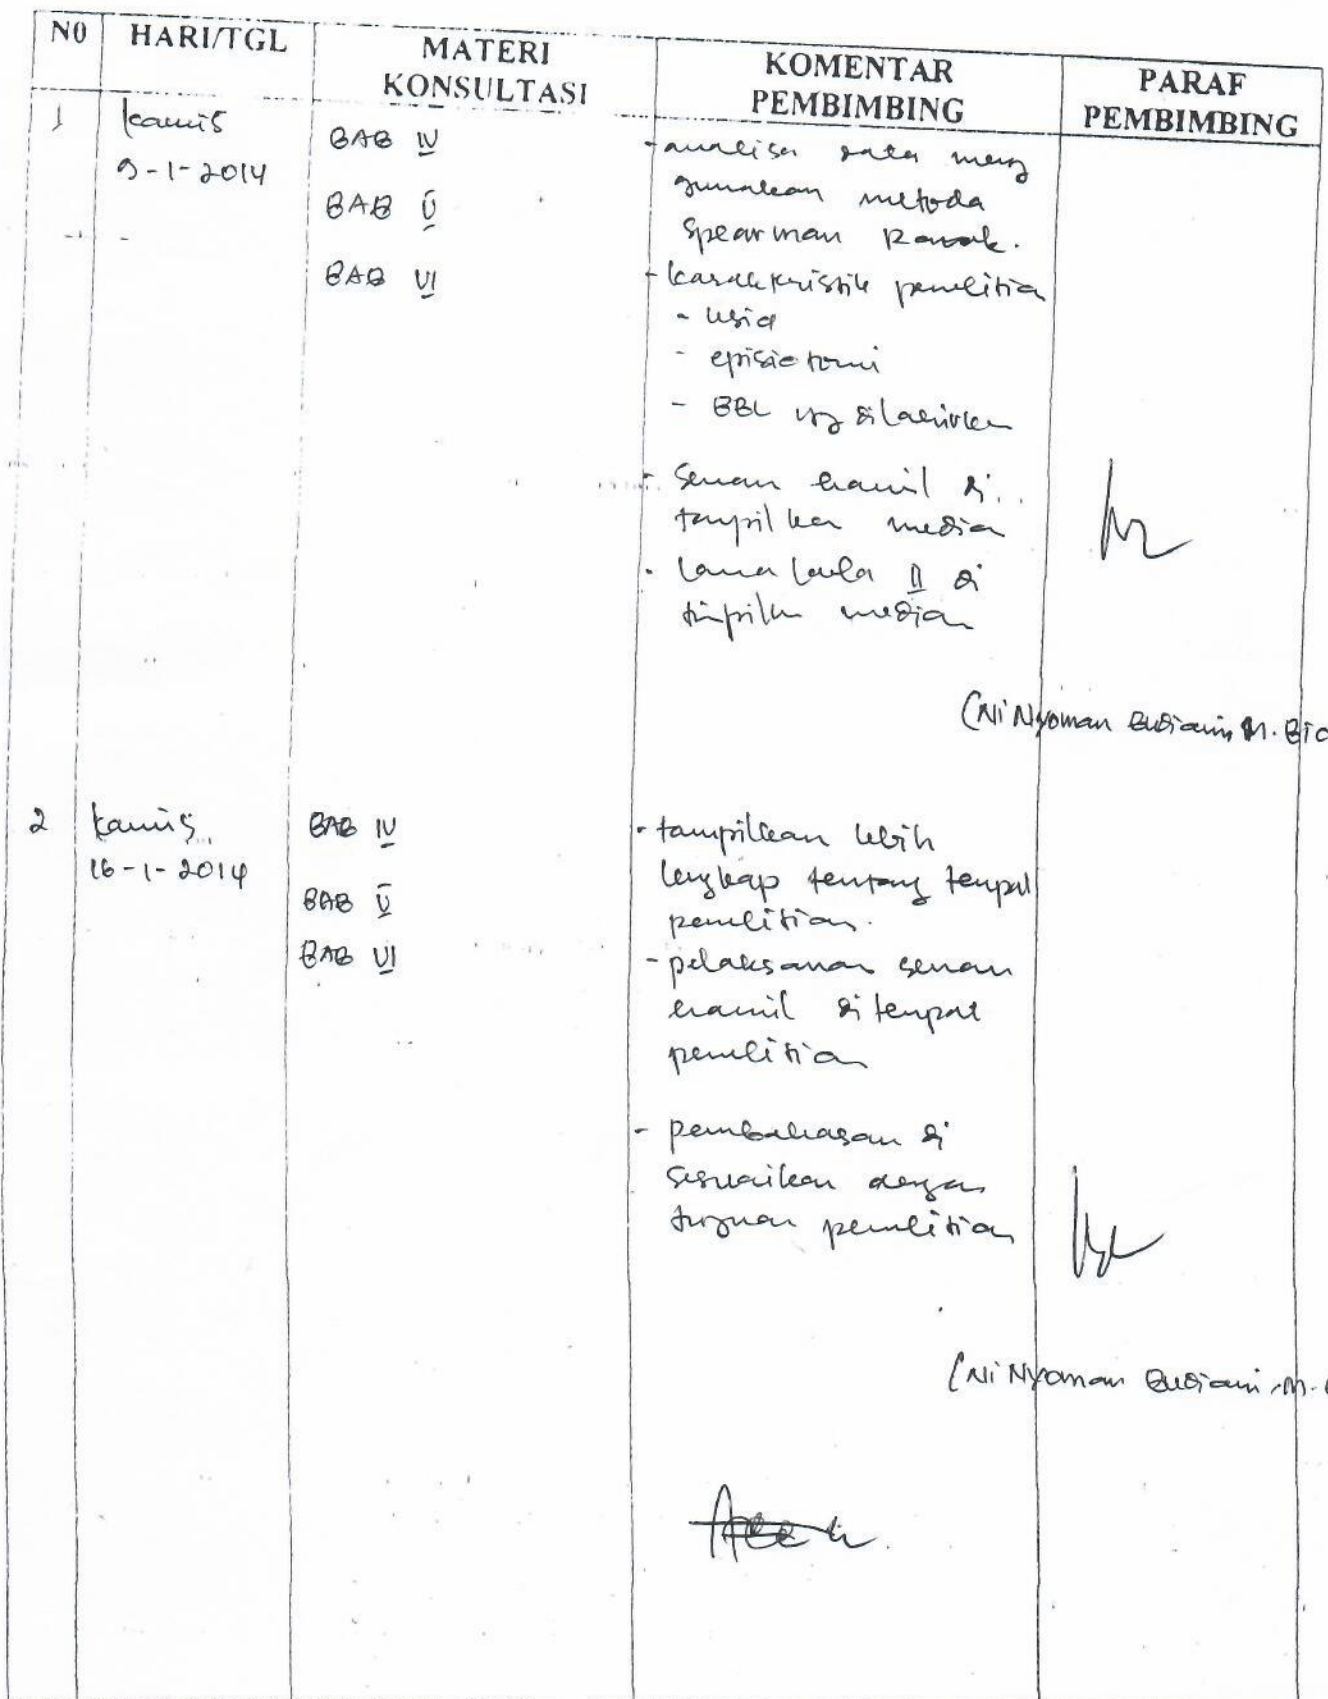 N0 HARI/TGL MATERI KONSULTASI KOMENTAR PEMBIMBING PARAF PEMBIMBING
1 Kamis
9-1-2014
BAB IV
BAB V
BAB VI
- analisa data meng
gunakan metoda
Spearman Rank.
- karakteristik penelitian
- usia
- episiotomi
- BBL yg dilahirkan
- Senam hamil di
tampilkan median
- lama kala II di
tampilkan median
(Ni Nyoman Budiani, M. Bio
2 Kamis,
16-1-2014
BAB IV
BAB V
BAB VI
- tampilkan lebih
lengkap tentang tempat
penelitian.
- pelaksanaan senam
hamil di tempat
penelitian
- pembahasan di
sesuaikan dengan
tujuan penelitian
(Ni Nyoman Budiani, M.